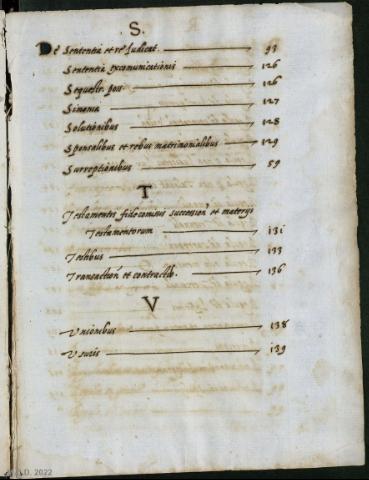 S.
De Sententia et re Judicat. 93
Sententia excomunicationis 126
Sequestr. pos. 126
Simonia 127
Solutionibus 128
Sponsalibus et rebus matrimonialibus 129
Surreptionibus 59
T
Testamentis fideicomiss succession et materijs
Testamentorum 131
Testibus 133
Transaction et contractib. 136
V
Unionibus 138
Usuris 139
2022